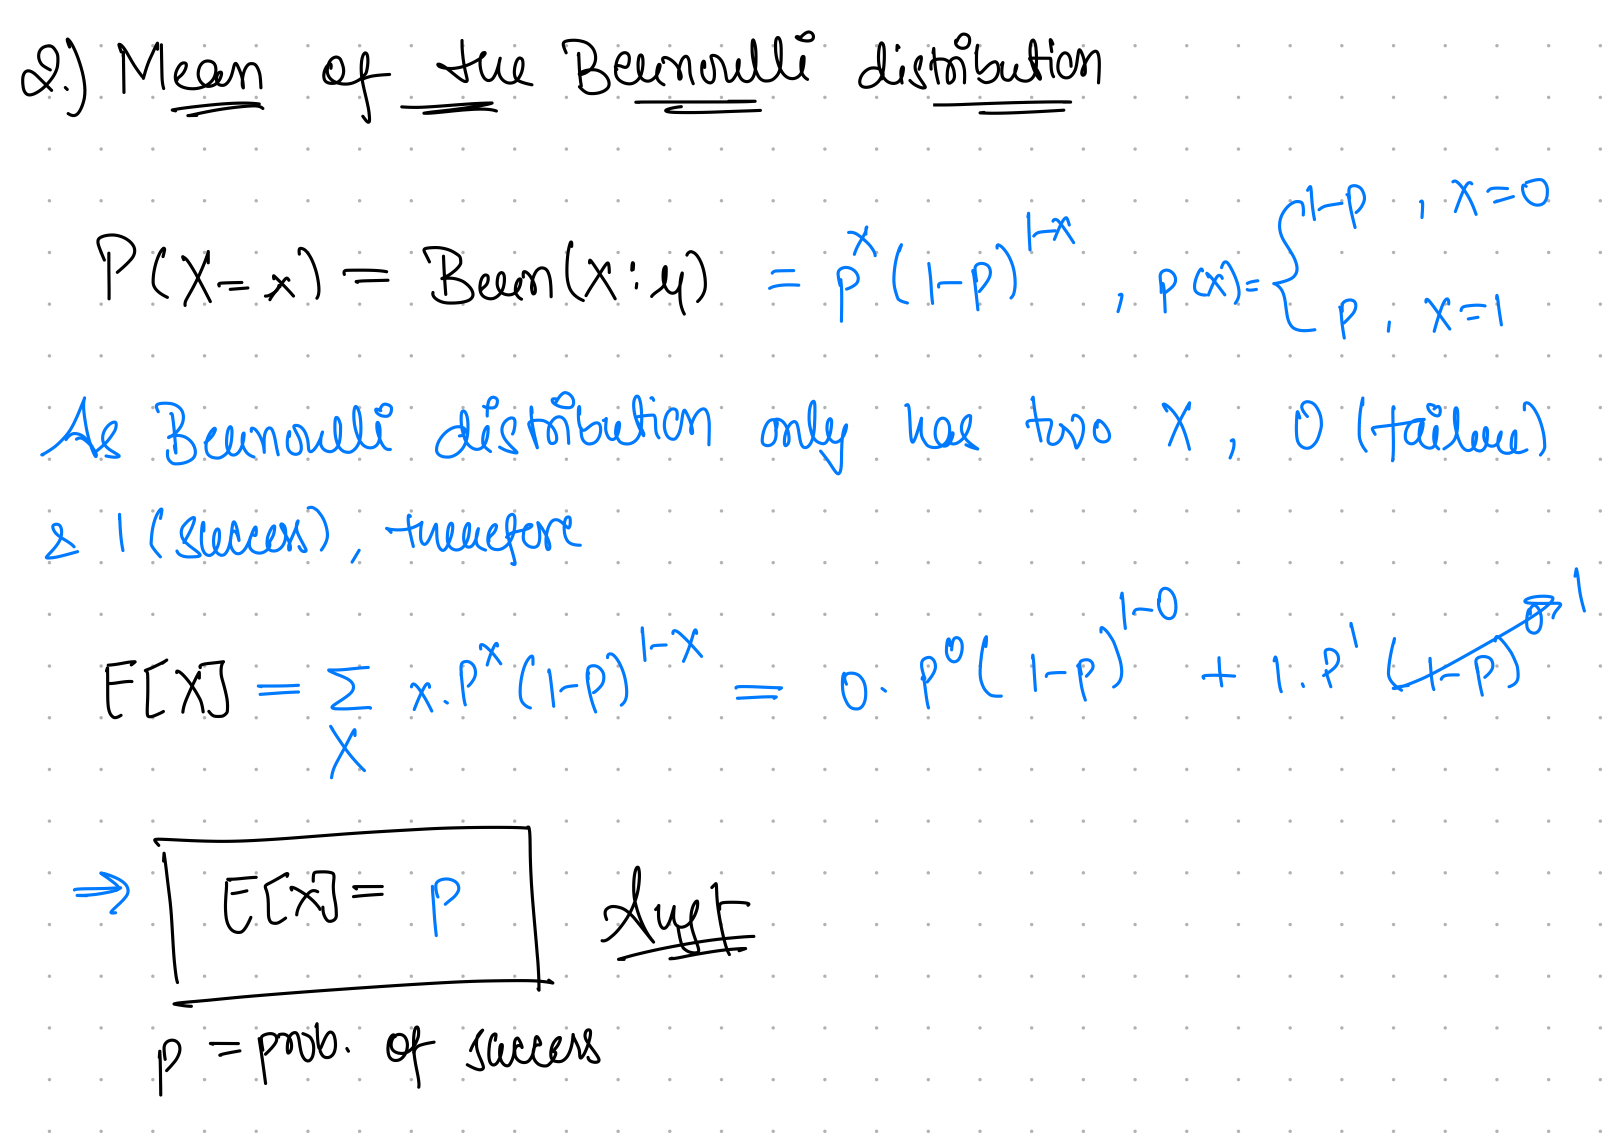 2.) Mean of the Bernoulli distribution
P(X=x) = Bern(x:μ) = p^x (1-p)^{1-x} , p(x)= { 1-p , x=0
p , x=1
As Bernoulli distribution only has two X, 0 (failure)
& 1 (success), therefore
E[X] = Σ_X x.p^x (1-p)^{1-x} = 0. p^0 (1-p)^{1-0} + 1. p^1 (1-p)^0 1
⇒ E[X] = p
p = prob. of success